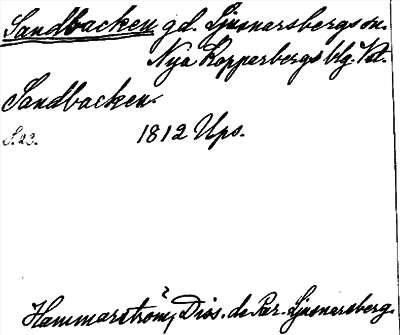 Sandbacken gd. Ljusnarsbergs sn.
Nya Kopparbergs blg. Vstm.
Sandbacken
S. 23.
1812 Ups.
Hammarström, Diss. de Par. Ljusnarsberg.